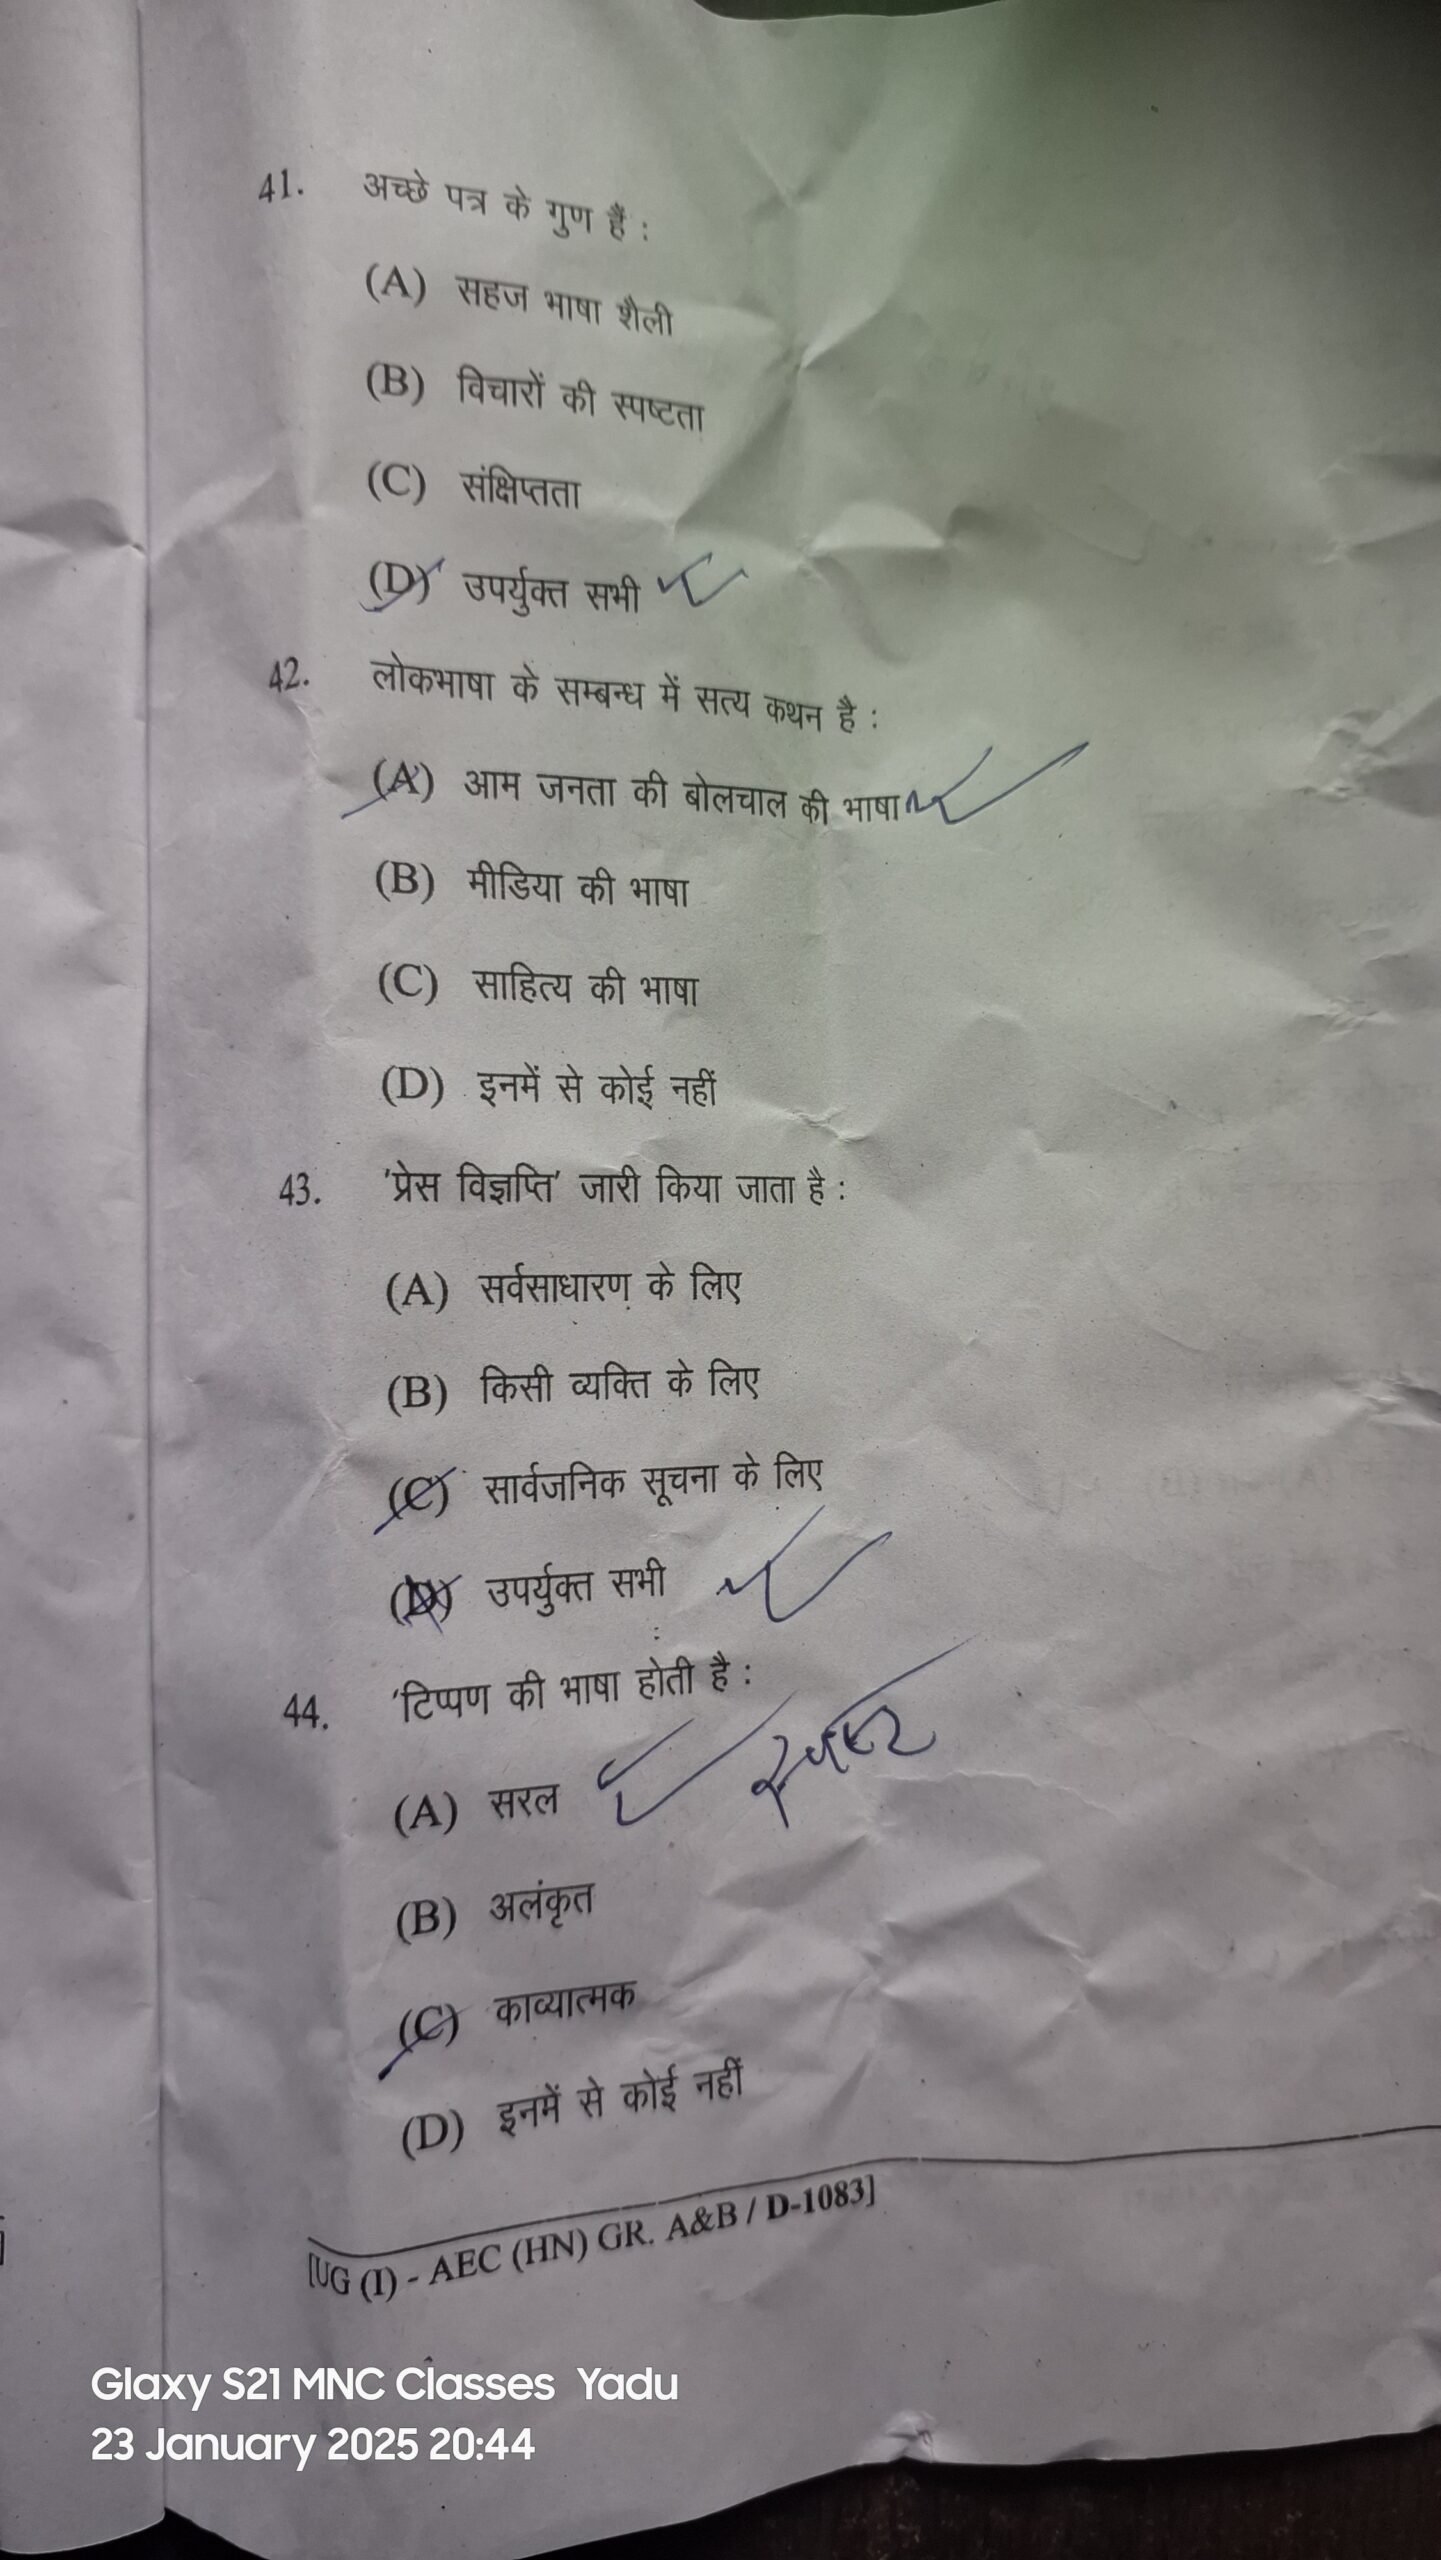 41. अच्छे पत्र के गुण हैं :
(A) सहज भाषा शैली
(B) विचारों की स्पष्टता
(C) संक्षिप्तता
(D) उपर्युक्त सभी
42. लोकभाषा के सम्बन्ध में सत्य कथन है :
(A) आम जनता की बोलचाल की भाषा
(B) मीडिया की भाषा
(C) साहित्य की भाषा
(D) इनमें से कोई नहीं
43. 'प्रेस विज्ञप्ति' जारी किया जाता है :
(A) सर्वसाधारण के लिए
(B) किसी व्यक्ति के लिए
(C) सार्वजनिक सूचना के लिए
(D) उपर्युक्त सभी
44. 'टिप्पण की भाषा होती है :
(A) सरल स्पष्ट
(B) अलंकृत
(C) काव्यात्मक
(D) इनमें से कोई नहीं
[UG (I) - AEC (HN) GR. A&B / D-1083]
Glaxy S21 MNC Classes Yadu
23 January 2025 20:44